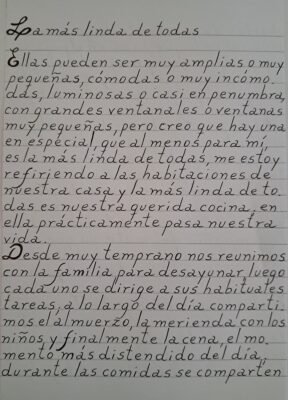 La más linda de todas
Ellas pueden ser muy amplias o muy
pequeñas, cómodas o muy incómo_
das, luminosas o casi en penumbra,
con grandes ventanales o ventanas
muy pequeñas, pero creo que hay una
en especial, que al menos para mí,
es la más linda de todas, me estoy
refiriendo a las habitaciones de
nuestra casa y la más linda de to_
das es nuestra querida cocina, en
ella prácticamente pasa nuestra
vida.
Desde muy temprano nos reunimos
con la familia para desayunar, luego
cada uno se dirige a sus habituales
tareas, a lo largo del día comparti_
mos el almuerzo, la merienda con los
niños y finalmente la cena, el mo_
mento más distendido del día,
durante las comidas se comparten